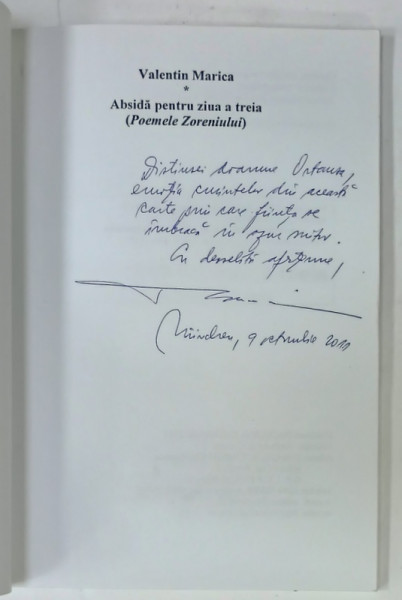 Valentin Marica
*
Absidă pentru ziua a treia
(Poemele Zoreniului)
Distinsei doamne Ortansa,
emoția cuvintelor din această
carte prin care ființa se
îmbracă în
Cu deosebită
9 octombrie 2011